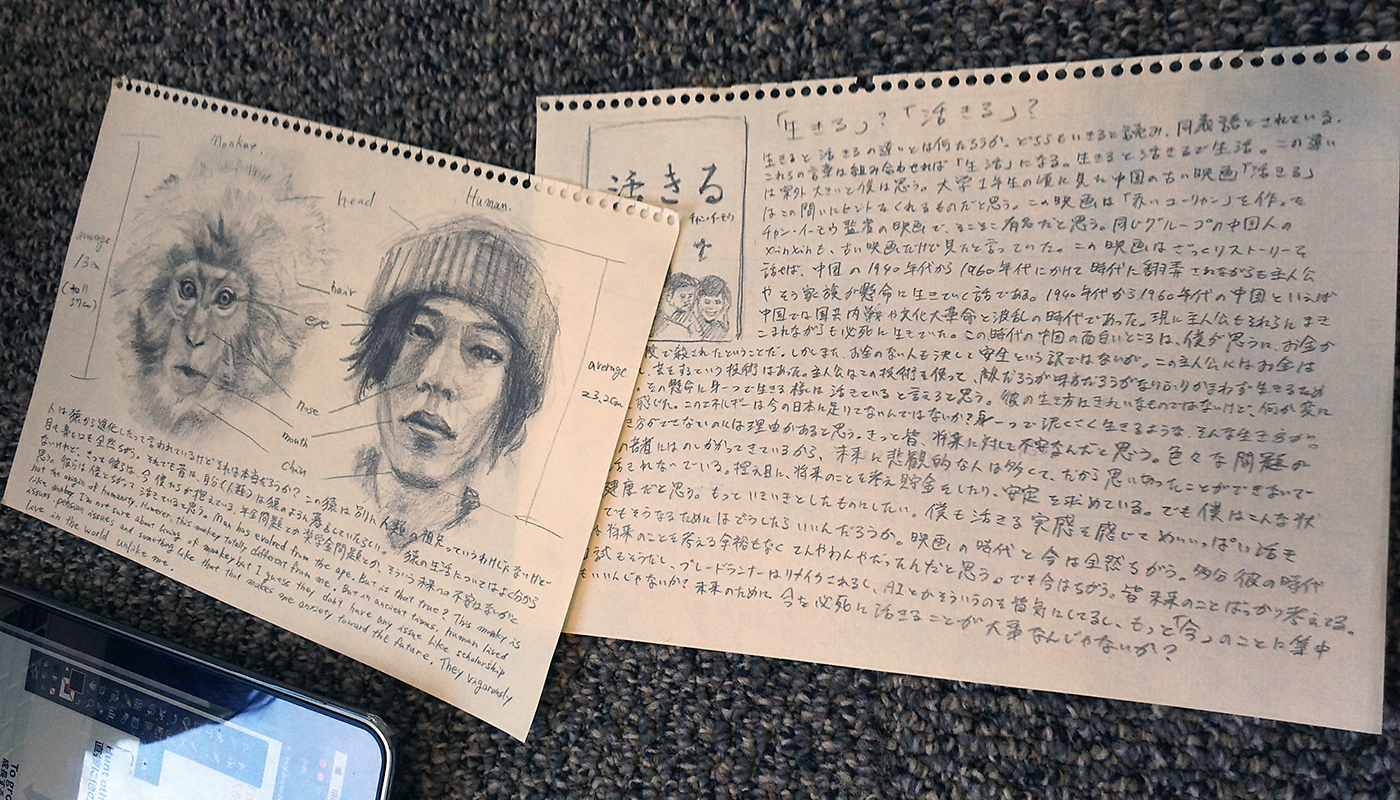 Monkey.
Human.
head
hair
eye
nose
mouth
Chin
average
13cm
(tall
57cm)
average
23.2cm
人は猿から進化したって言われているけどそれは本当だろうか？この猿は別に人類の祖先っていうわけじゃないけど
目も鼻も口も全然ちがう。それでも昔は、自分(人類)は猿のように暮らしていたらしい。猿の生活についてはよく分から
ないけれど、きっと彼らは、今僕たちが抱えている、年金問題とか奨学金問題とか、そういう未来への不安はないかと
思う。彼らは僕とちがって活きていると思う。Man has evolved from the ape. But is that true? This monky is
not the origin of humanity. However, this monkey totally different from me. But in ancient times, human lived
like monkey. I'm not sure about living of monkey but I guess they don't have any issue like scholarship
issues, pension issues and something like that that makes me anxiety toward the future. They vigorously
live in the world unlike me.
「生きる」？「活きる」？
活きる
チャン・イーモウ
生きると活きるの違いとは何だろうか。どちらもいきると読み、同義語とされている。
これらの言葉は組み合わせれば「生活」になる。生きると活きるで生活。この違い
は案外大きいと僕は思う。大学1年生の頃に見た中国の古い映画「活きる」
はこの問いにヒントをくれるものだと思う。この映画は「赤いコーリャン」を作った
チャン・イーモウ監督の映画で、そこそこ有名だと思う。同じグループの中国人の
xinxinも、古い映画だけど見たと言っていた。この映画はざっくりストーリーを
話せば、中国の1940年代から1960年代にかけて時代に翻弄されながらも主人公
やその家族が懸命に生きていく話である。1940年代から1960年代の中国といえば
中国では国共内戦や文化大革命と波乱の時代であった。現に主人公もそれらにまき
こまれながらも必死に生きていた。この時代の中国の面白いところは、僕が思うに、お金が
で殺されたということだ。しかしまた、お金のない人も決して安全という訳ではないが。この主人公にはお金は
をするという技術はあった。主人公はこの技術を使って、敵だろうが味方だろうがなりふりかまわず生きるため
その懸命に身一つで生きる様は活きていると言えると思う。彼の生き方はきれいなものではないけど、何か変に
感じた。このエネルギーは今の日本に足りてないんではないか？身一つで泥くさく生きるような、そんな生き方が
方ができないのには理由があると思う。きっと皆、将来に対して不安なんだと思う。色々な問題が
の若者にはのしかかってきているから、未来に悲観的な人は多くて、だから思いきったことができないで
されないでいる。控え目に、将来のことを考え貯金をしたり、安定を求めている。でも僕はこんな状
だと思う。もっといきいきとしたものにしたい。僕も活きる実感を感じてめいいっぱい活き
でもそうなるためにはどうしたらいいんだろうか。映画の時代と今は全然ちがう。多分彼の時代
将来のことを考える余裕もなくてんやわんやだったんだと思う。でも今はちがう。皆未来のことばっかり考えてる。
試もそうだし、ブレードランナーはリメイクされるし、AIとかそういうのを皆気にしてるし、もっと「今」のことに集中
もいいんじゃないか？未来のために今を必死に活きることが大事なんじゃないか？